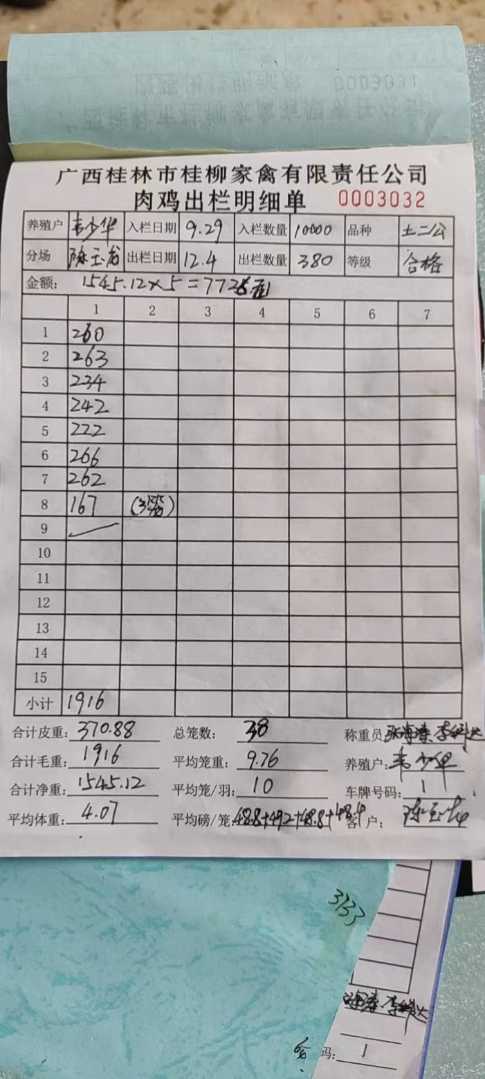 广西桂林市桂柳家禽有限责任公司
肉鸡出栏明细单 0003032
养殖户 韦少华 入栏日期 9.29 入栏数量 10000 品种 土二公
分场 出栏日期 12.4 出栏数量 380 等级 合格
金额: 1545.12×5=7725元
1 2 3 4 5 6 7
1 260
2 263
3 234
4 242
5 222
6 266
7 262
8 167 (3笼)
9
10
11
12
13
14
15
小计 1916
合计皮重: 370.88 总笼数: 38 称重员:
合计毛重: 1916 平均笼重: 9.76 养殖户: 韦少华
合计净重: 1545.12 平均笼/羽: 10 车牌号码: 1
平均体重: 4.07 平均磅/笼: 48.8+49.2+48.8+48.4 客户:
3133
码: 1